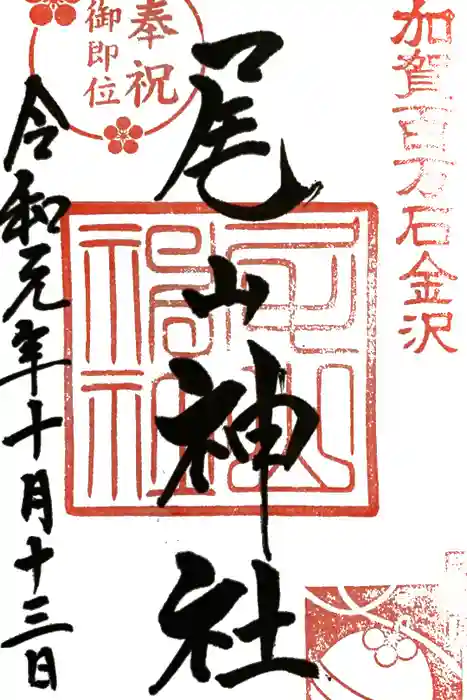 加賀百万石金沢
尾山神社
尾山神社
奉祝
御即位
令和元年十月十三日